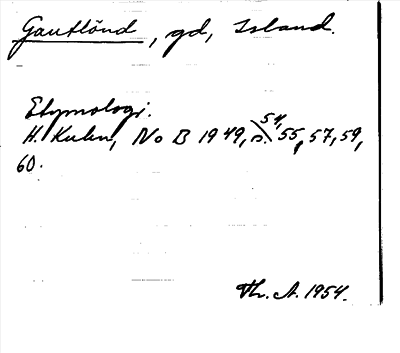 Gautlönd, gd, Island.
Etymologi.
H. Kuhn, No B 1949, s. 54, 55, 57, 59,
60.
Th. A. 1954.